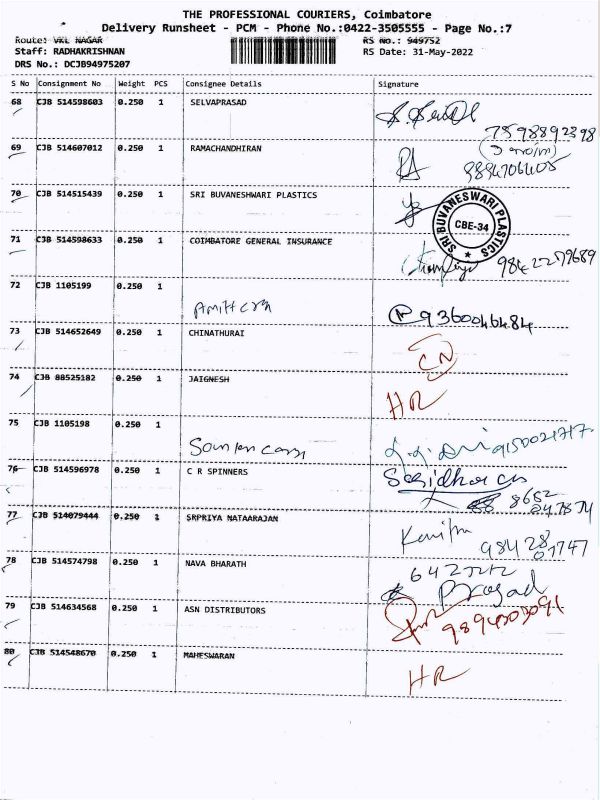 THE PROFESSIONAL COURIERS, Coimbatore
Delivery Runsheet - PCM - Phone No.:0422-3505555 - Page No.:7
Route: VKL NAGAR RS No.: 949752
Staff: RADHAKRISHNAN RS Date: 31-May-2022
DRS No.: DCJB94975207
S No Consignment No Weight PCS Consignee Details Signature
68 CJB 514598603 0.250 1 SELVAPRASAD
7598892398
69 CJB 514607012 0.250 1 RAMACHANDHIRAN
9894706405
70 CJB 514515439 0.250 1 SRI BUVANESHWARI PLASTICS
SRI BUVANESWARI PLASTICS
CBE-34
71 CJB 514598633 0.250 1 COIMBATORE GENERAL INSURANCE
9842279689
72 CJB 1105199 0.250 1
9360046484
73 CJB 514652649 0.250 1 CHINATHURAI
CN
74 CJB 88525182 0.250 1 JAIGNESH
HR
75 CJB 1105198 0.250 1
9150021717
76 CJB 514596978 0.250 1 C R SPINNERS
Sasidharan
8652
77 CJB 514079444 0.250 1 SRPRIYA NATAARAJAN
Kavitha 984281
01747
78 CJB 514574798 0.250 1 NAVA BHARATH
Prasad
79 CJB 514634568 0.250 1 ASN DISTRIBUTORS
9894303091
80 CJB 514548670 0.250 1 MAHESWARAN
HR